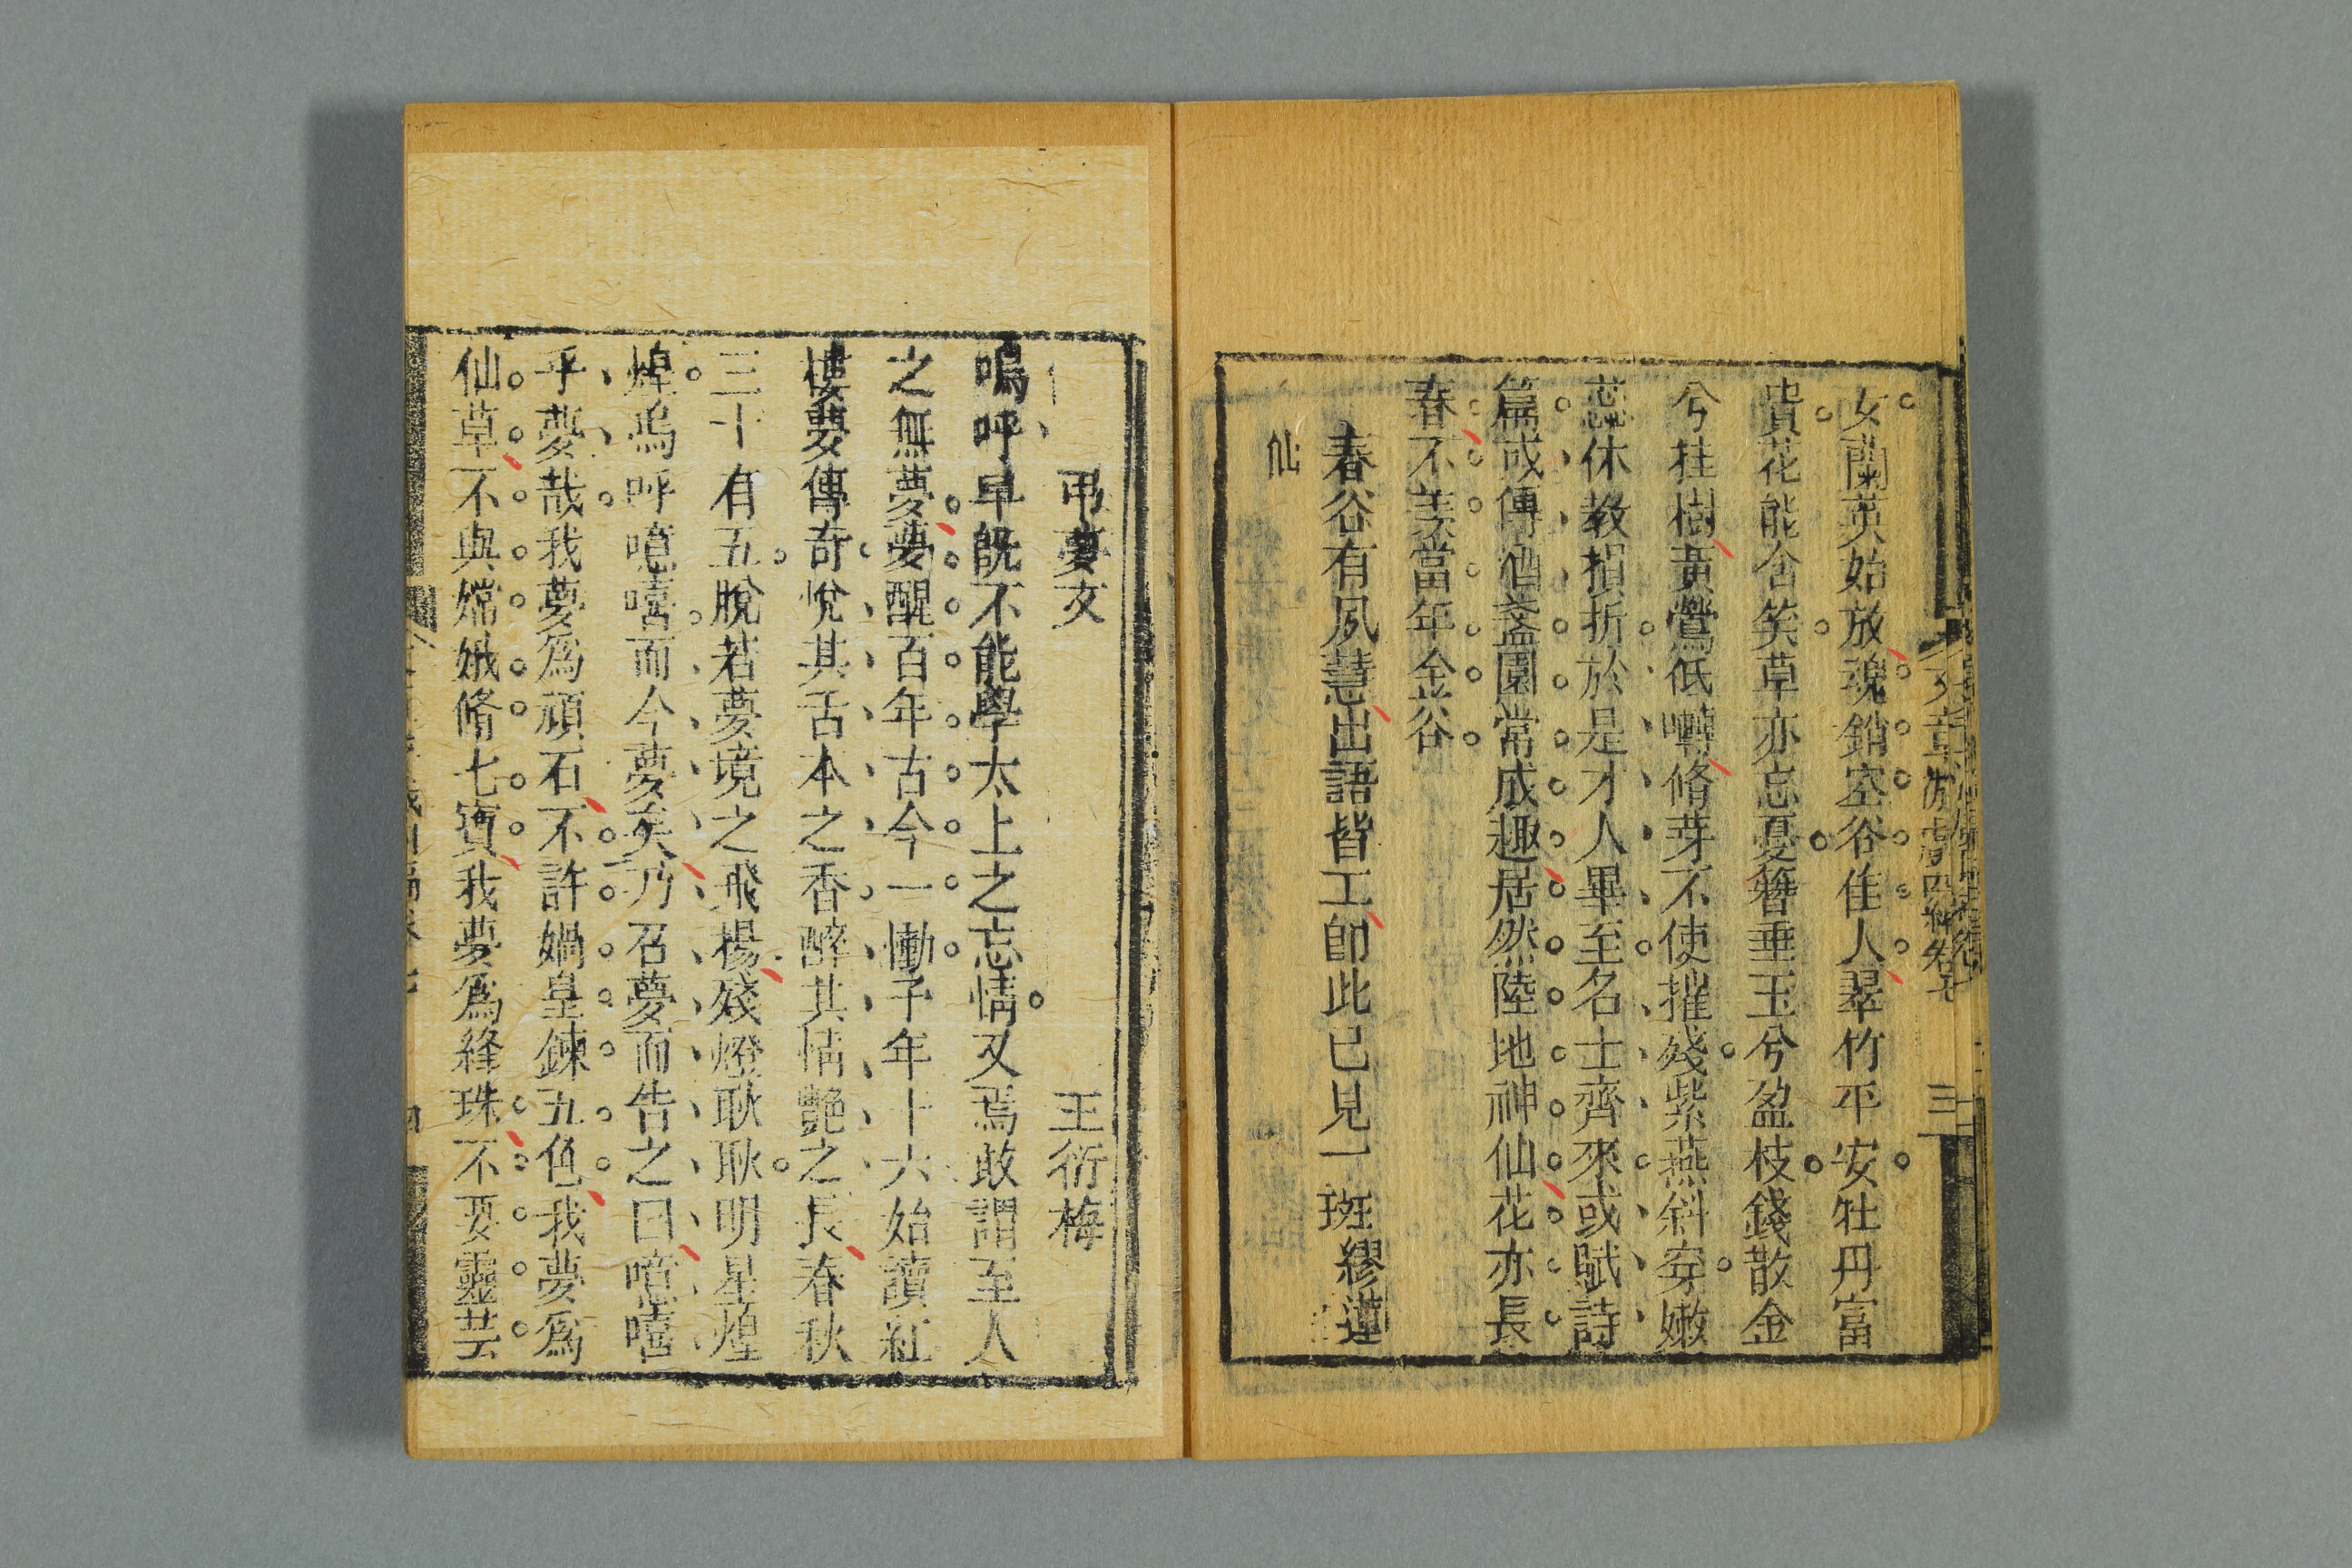 文章游戲四編卷七
三
女蘭英始放魂銷空谷佳人翠竹平安牡丹富
貴花能含笑草亦忘憂簪垂玉兮盈枝錢散金
兮桂樹黃鶯低囀脩芽不使摧殘紫燕斜穿嫩
蕊休教損折於是才人畢至名士齊來或賦詩
篇或傳酒盞園常成趣居然陸地神仙花亦長
春不羨當年金谷
春谷有夙慧出語皆工卽此已見一斑繆蓮
仙
弔夢文
王衍梅
嗚呼早旣不能學太上之忘情又焉敢謂至人
之無夢夢醒百年古今一慟予年十六始讀紅
樓夢傳奇悅其舌本之香醉其情艷之長春秋
三十有五脫若夢境之飛揚殘燈耿耿明星煌
煌嗚呼噫嘻而今夢矣乃召夢而告之曰噫嘻
乎夢哉我夢爲頑石不許媧皇鍊五色我夢爲
仙草不與嫦娥脩七寶我夢爲絳珠不要靈芸